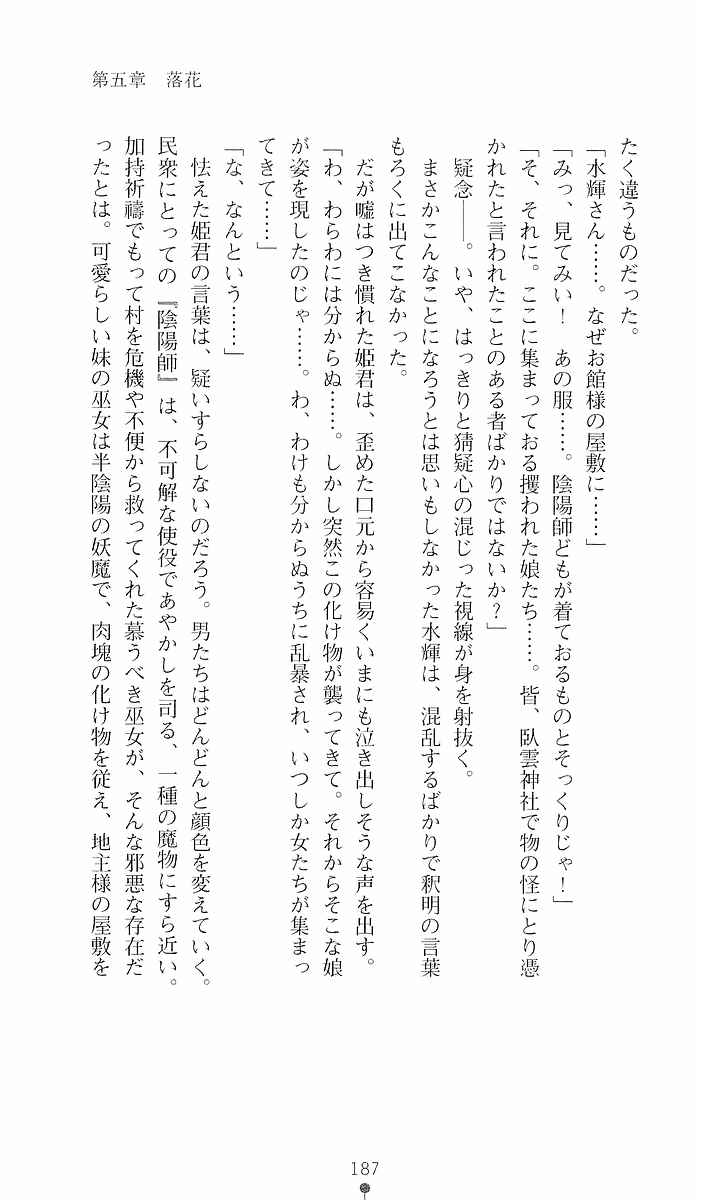 第五章　落花
たく違うものだった。
「水輝さん……。なぜお館様の屋敷に……」
「みっ、見てみい！　あの服……。陰陽師どもが着ておるものとそっくりじゃ！」
「そ、それに。ここに集まっておる攫われた娘たち……。皆、臥雲神社で物の怪にとり憑
かれたと言われたことのある者ばかりではないか？」
疑念――。いや、はっきりと猜疑心の混じった視線が身を射抜く。
まさかこんなことになろうとは思いもしなかった水輝は、混乱するばかりで釈明の言葉
もろくに出てこなかった。
だが嘘はつき慣れた姫君は、歪めた口元から容易くいまにも泣き出しそうな声を出す。
「わ、わらわには分からぬ……。しかし突然この化け物が襲ってきて。それからそこな娘
が姿を現したのじゃ……。わ、わけも分からぬうちに乱暴され、いつしか女たちが集まっ
てきて……」
「な、なんという……」
怯えた姫君の言葉は、疑いすらしないのだろう。男たちはどんどんと顔色を変えていく。
民衆にとっての『陰陽師』は、不可解な使役であやかしを司る、一種の魔物にすら近い。
加持祈禱でもって村を危機や不便から救ってくれた慕うべき巫女が、そんな邪悪な存在だ
ったとは。可愛らしい妹の巫女は半陰陽の妖魔で、肉塊の化け物を従え、地主様の屋敷を
187